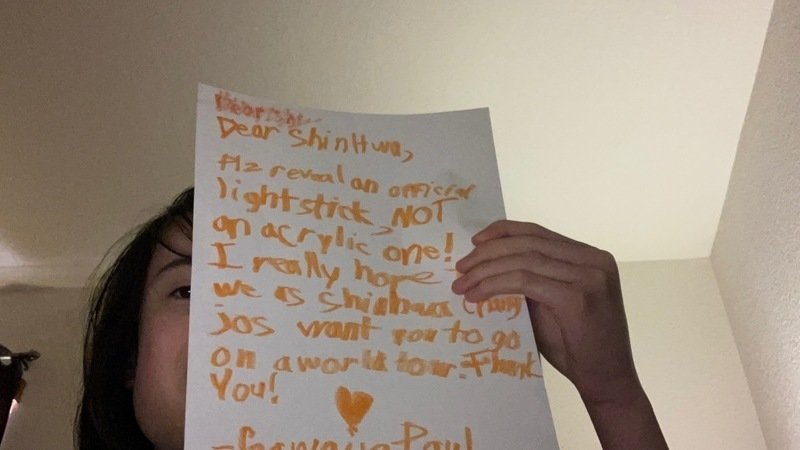 Dear Shinhwa,
Plz reveal an official
lightstick, NOT
an acrylic one!
I really hope
we as Shinhwa Chang
jos want you to go
on a world tour. Thank
You!